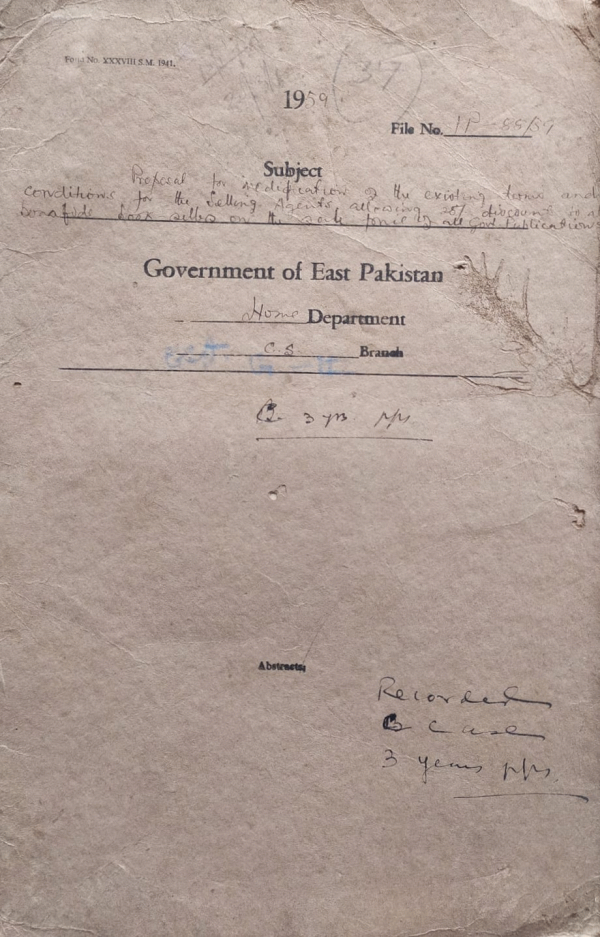 Form No. XXXVIII S.M. 1941.
37
1959
File No. 1P-
Subject
Proposal for modification of the existing terms and
conditions for the Selling Agents, allowing 25% discount to all
bonafide book seller on the sale price of all Govt. Publications
Government of East Pakistan
Home Department
C.S. Branch
B 3 yrs
Abstracts.
Recorded
B Case
3 years